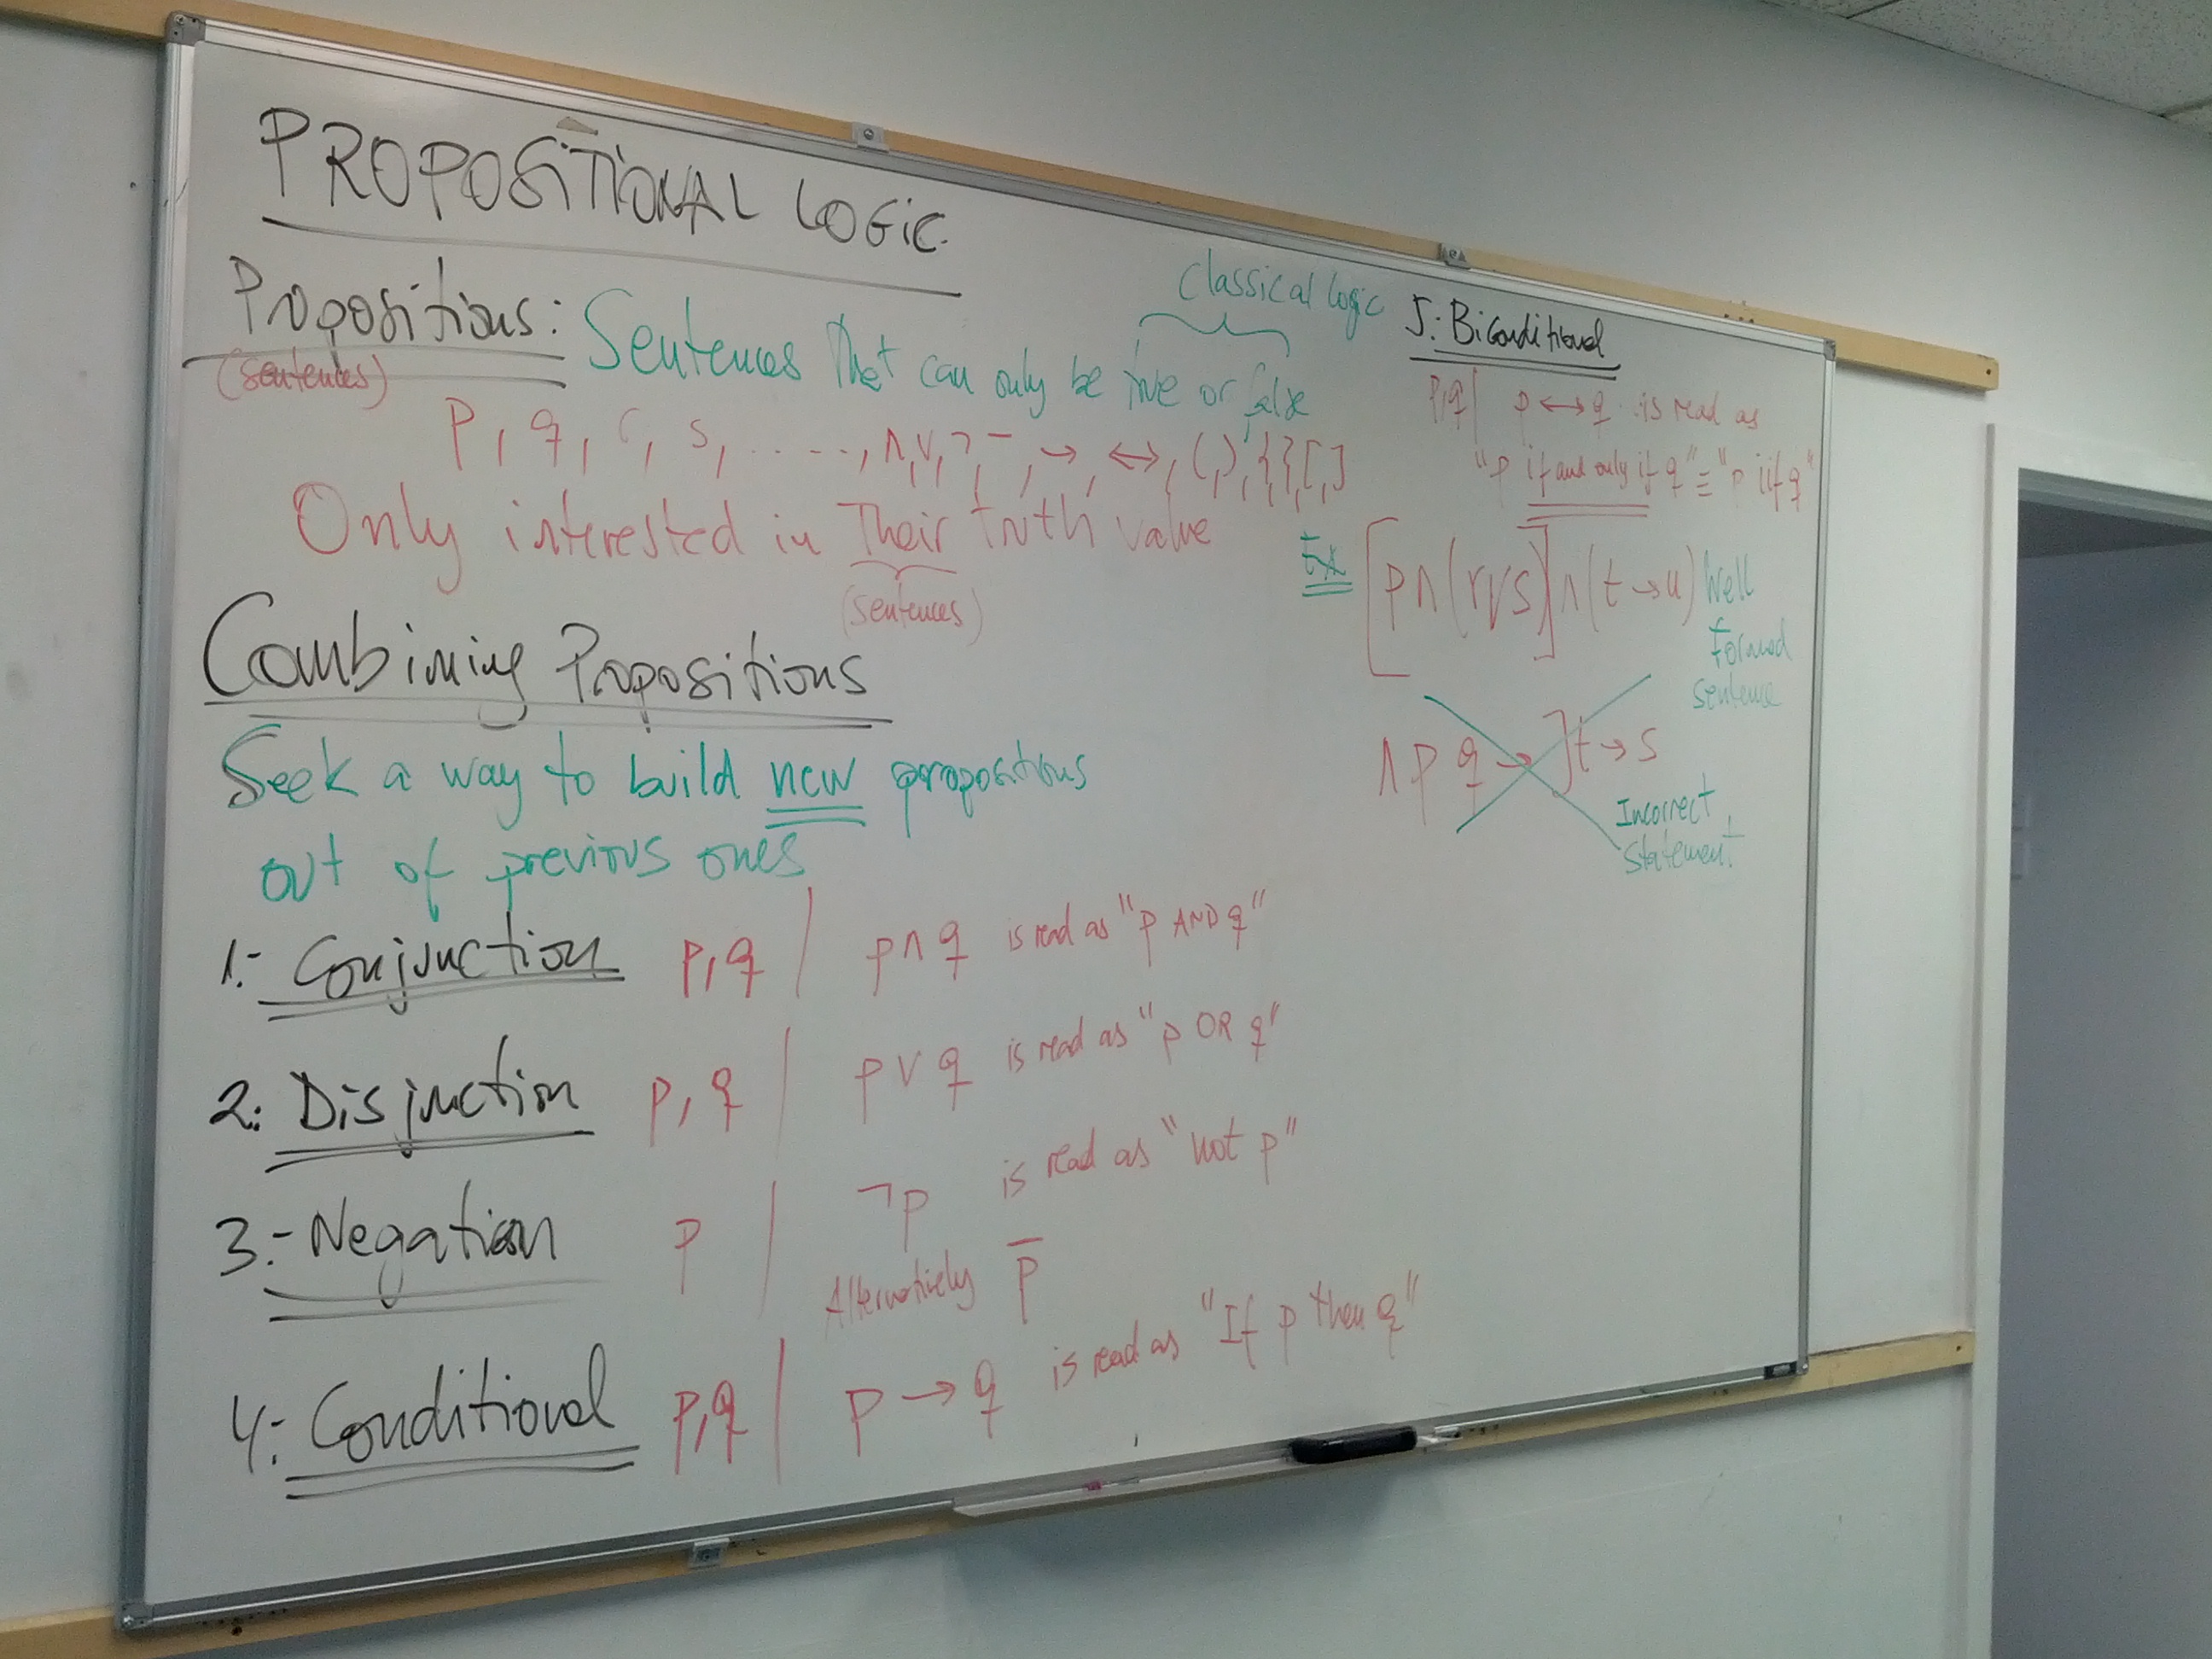 PROPOSITIONAL LOGIC.
Propositions: Sentences that can only be true or false
(sentences)
Classical logic
P, q, r, s, ....., ∧, ∨, ¬, ‾, →, ↔, (,), {,}, [,]
Only interested in Their truth value
(sentences)
Combining Propositions
Seek a way to build new propositions
out of previous ones
1.- Conjunction p, q / p ∧ q is read as "p AND q"
2.- Disjunction p, q / p ∨ q is read as "p OR q"
3.- Negation p / ¬p is read as "not p"
Alternatively p̅
4.- Conditional p, q / p → q is read as "If p then q"
5.- Biconditional
p, q / p ↔ q is read as
"p if and only if q" ≡ "p iif q"
Ex [p ∧ (r ∨ s)] ∧ (t → u) Well
formed
sentence
∧ p q → ] t → s
Incorrect
statement!